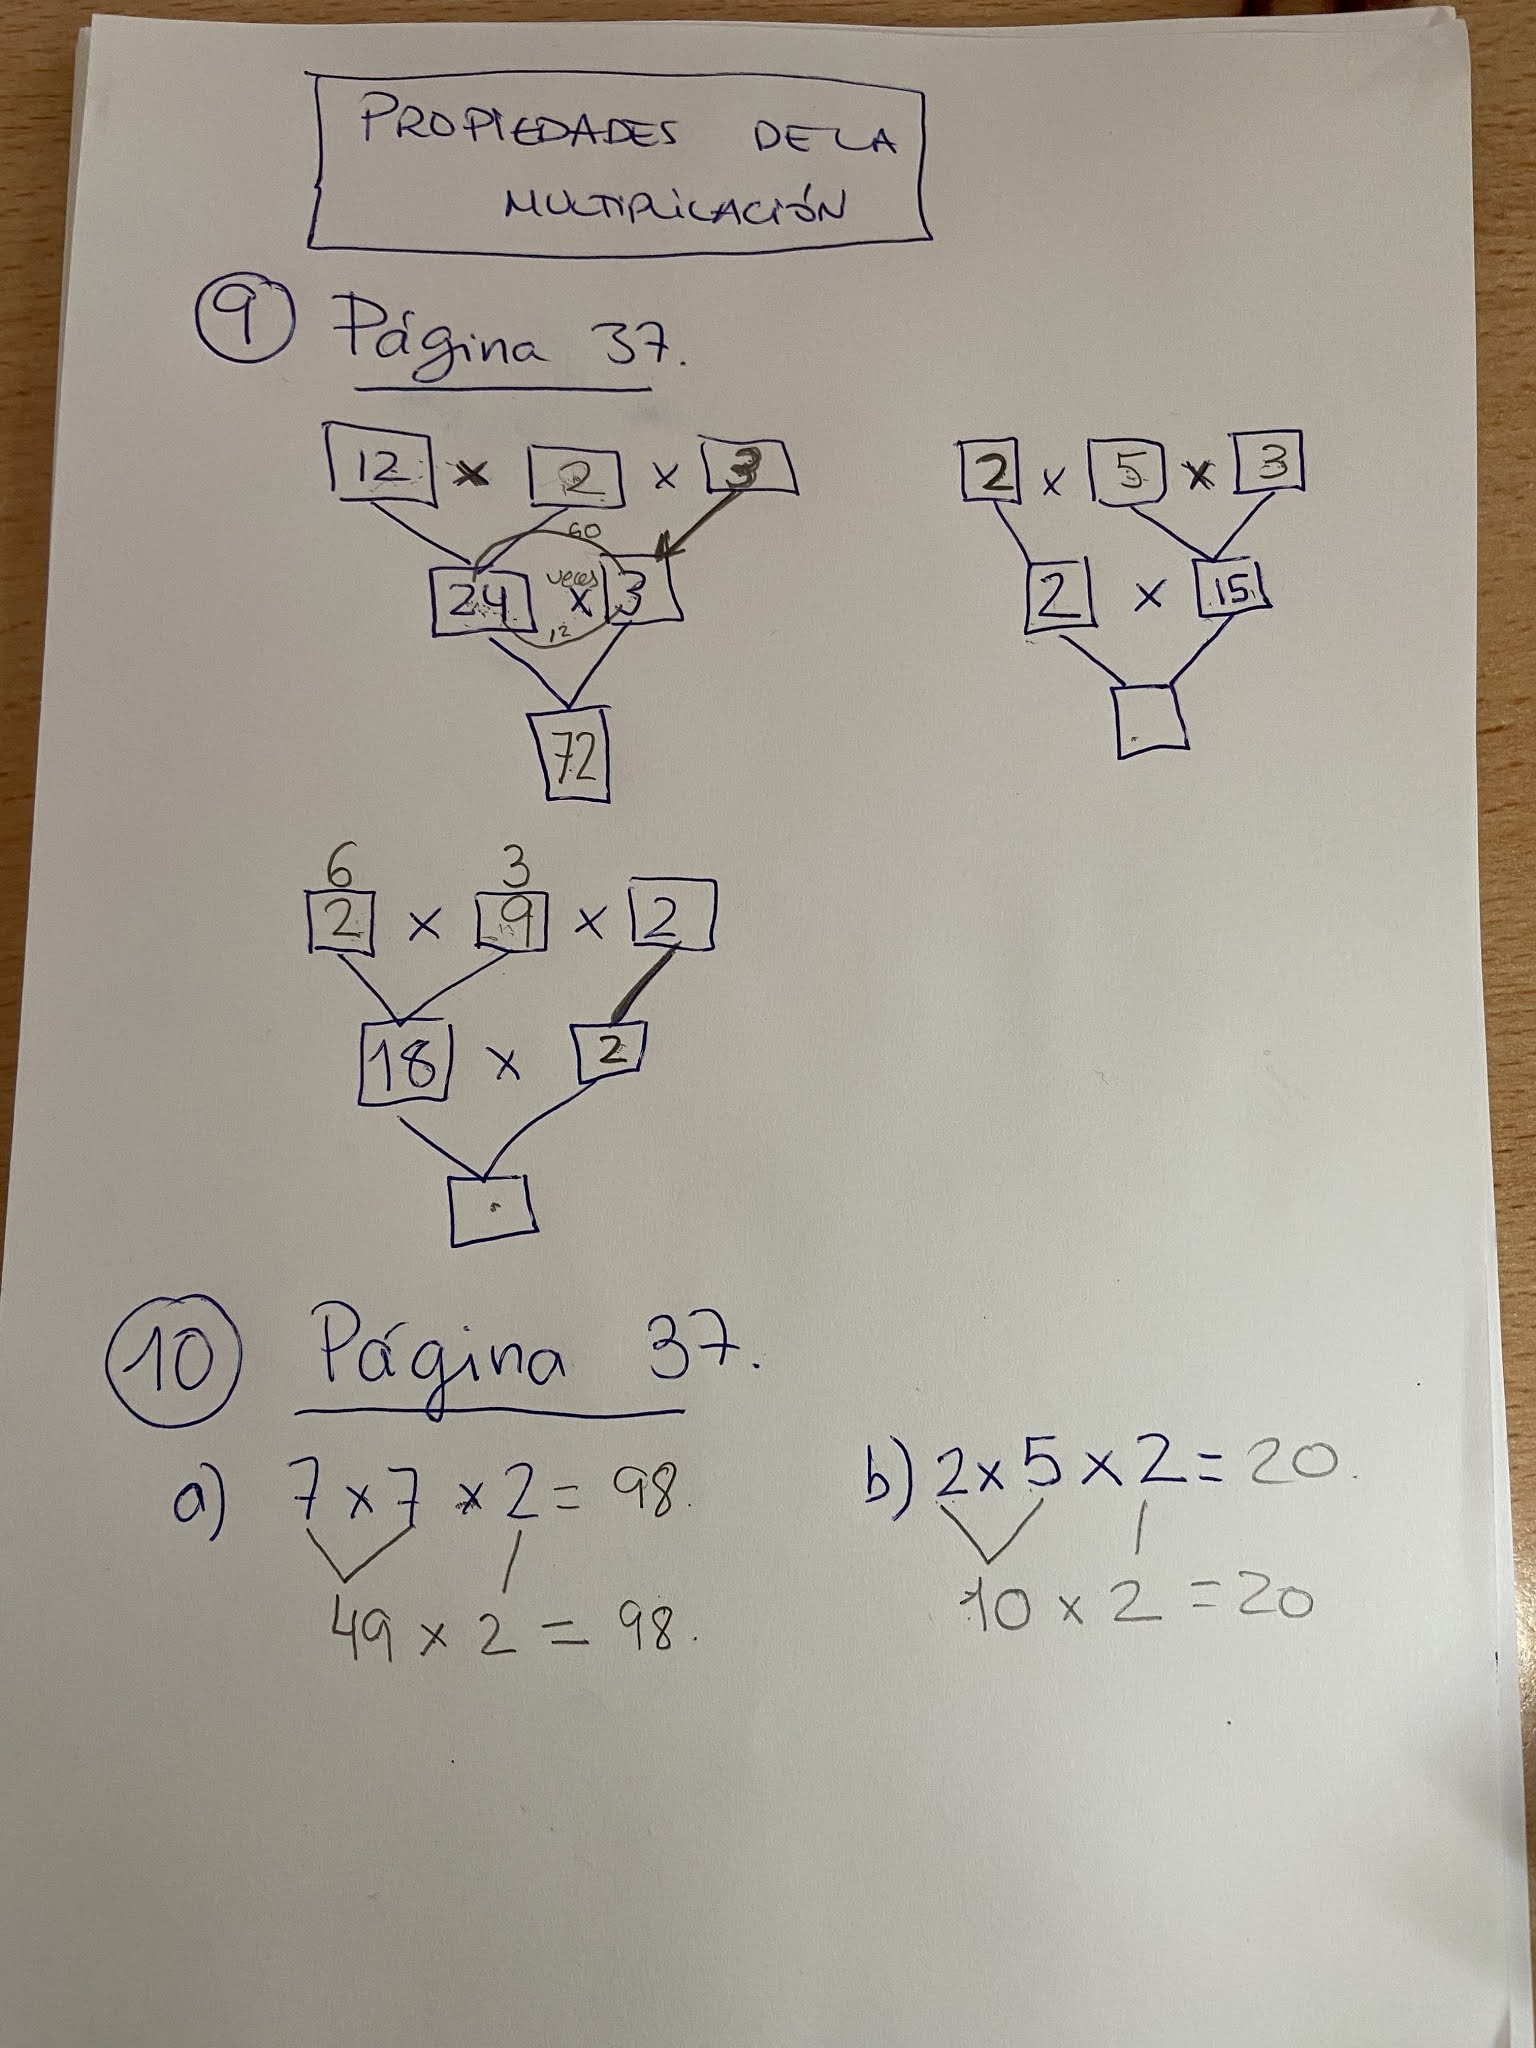 PROPIEDADES DE LA
MULTIPLICACIÓN
9 Página 37.
12 x 2 x 3
60
veces
24 x 3
12
72
2 x 5 x 3
2 x 15
6 3
2 x 9 x 2
18 x 2
10 Página 37.
a) 7 x 7 x 2 = 98.
49 x 2 = 98.
b) 2 x 5 x 2 = 20.
10 x 2 = 20